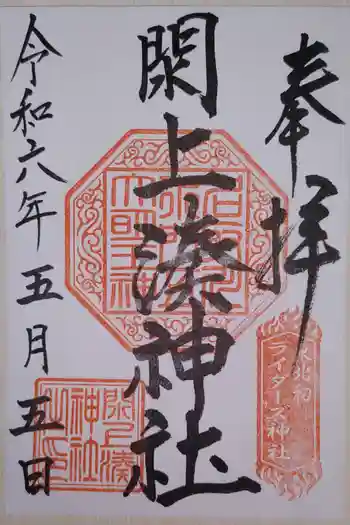 奉拝
閖上湊神社
令和六年五月五日
東北初
ライダーズ神社
閖上湊
神社